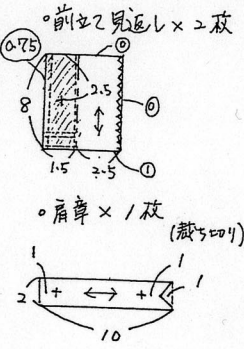 ○前立て見返し×2枚
0.75
⓪
2.5
8
⓪
1.5
2.5
①
○肩章×1枚
(裁ち切り)
1
1
1
2
10